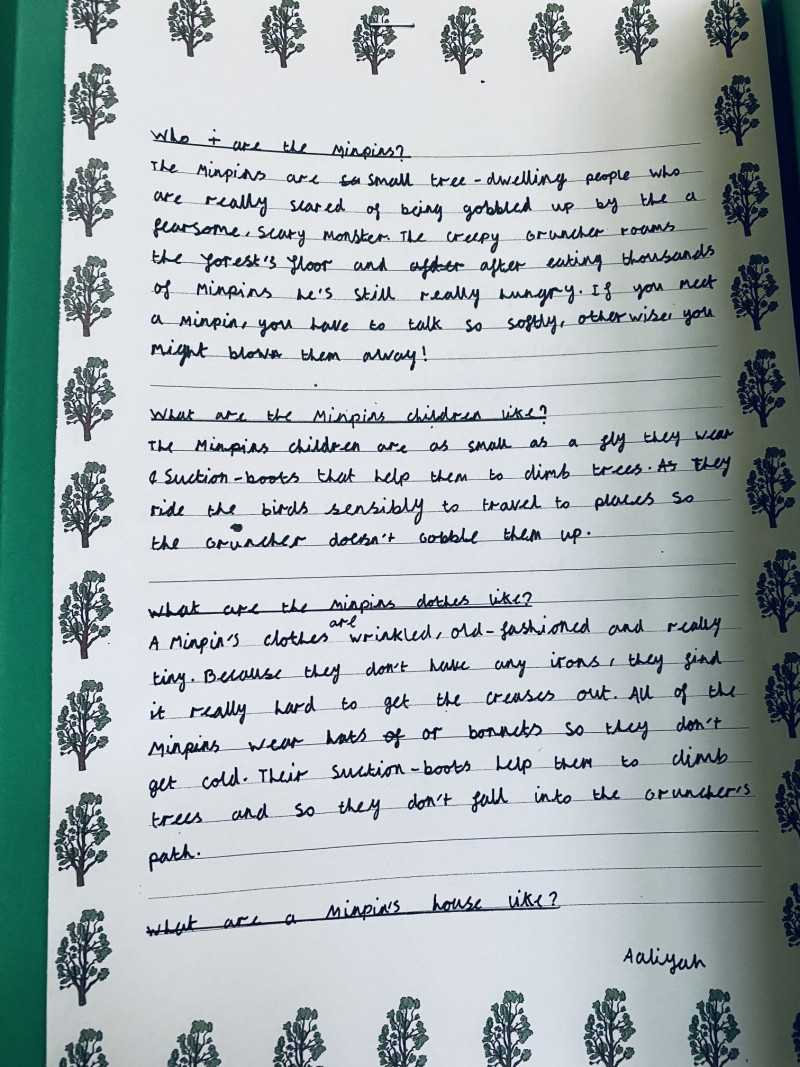 Who i are the Minpins?
The Minpins are sa small tree-dwelling people who
are really scared of being gobbled up by the a
fearsome, scary monster. The creepy Gruncher roams
the forest's floor and after after eating thousands
of Minpins he's still really hungry. If you meet
a Minpin, you have to talk so softly, otherwise, you
might blown them away!
What are the Minpins children like?
The Minpins children are as small as a fly they wear
Suction-boots that help them to climb trees. As They
ride the birds sensibly to travel to places so
the Gruncher doesn't gobble them up.
What are the minpins clothes like?
A Minpin's clothes are wrinkled, old-fashioned and really
tiny. Because they don't have any irons, they find
it really hard to get the creases out. All of the
Minpins wear hats of or bonnets so they don't
get cold. Their Suction-boots help them to climb
trees and so they don't fall into the Gruncher's
path.
What are a Minpin's house like?
Aaliyah